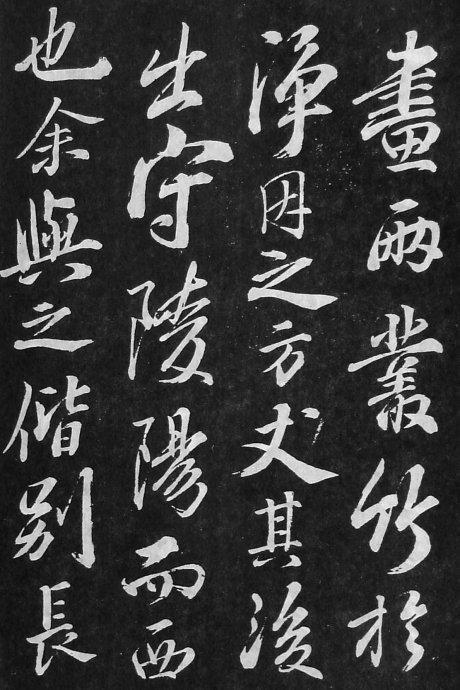 畫兩叢竹於
淨因之方丈其後
出守陵陽而西
也余與之偕別長